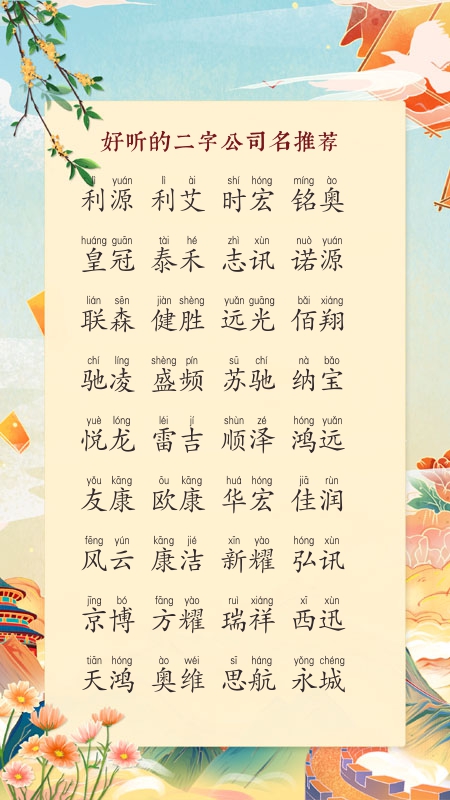 好听的二字公司名推荐
lì yuán lì ài shí hóng míng ào
利源 利艾 时宏 铭奥
huáng guān tài hé zhì xùn nuò yuán
皇冠 泰禾 志讯 诺源
lián sēn jiàn shèng yuǎn guāng bǎi xiáng
联森 健胜 远光 佰翔
chí líng shèng pín sū chí nà bǎo
驰凌 盛频 苏驰 纳宝
yuè lóng léi jí shùn zé hóng yuǎn
悦龙 雷吉 顺泽 鸿远
yǒu kāng ōu kāng huá hóng jiā rùn
友康 欧康 华宏 佳润
fēng yún kāng jié xīn yào hóng xùn
风云 康洁 新耀 弘讯
jīng bó fāng yào ruì xiáng xī xùn
京博 方耀 瑞祥 西迅
tiān hóng ào wéi sī háng yǒng chéng
天鸿 奥维 思航 永城